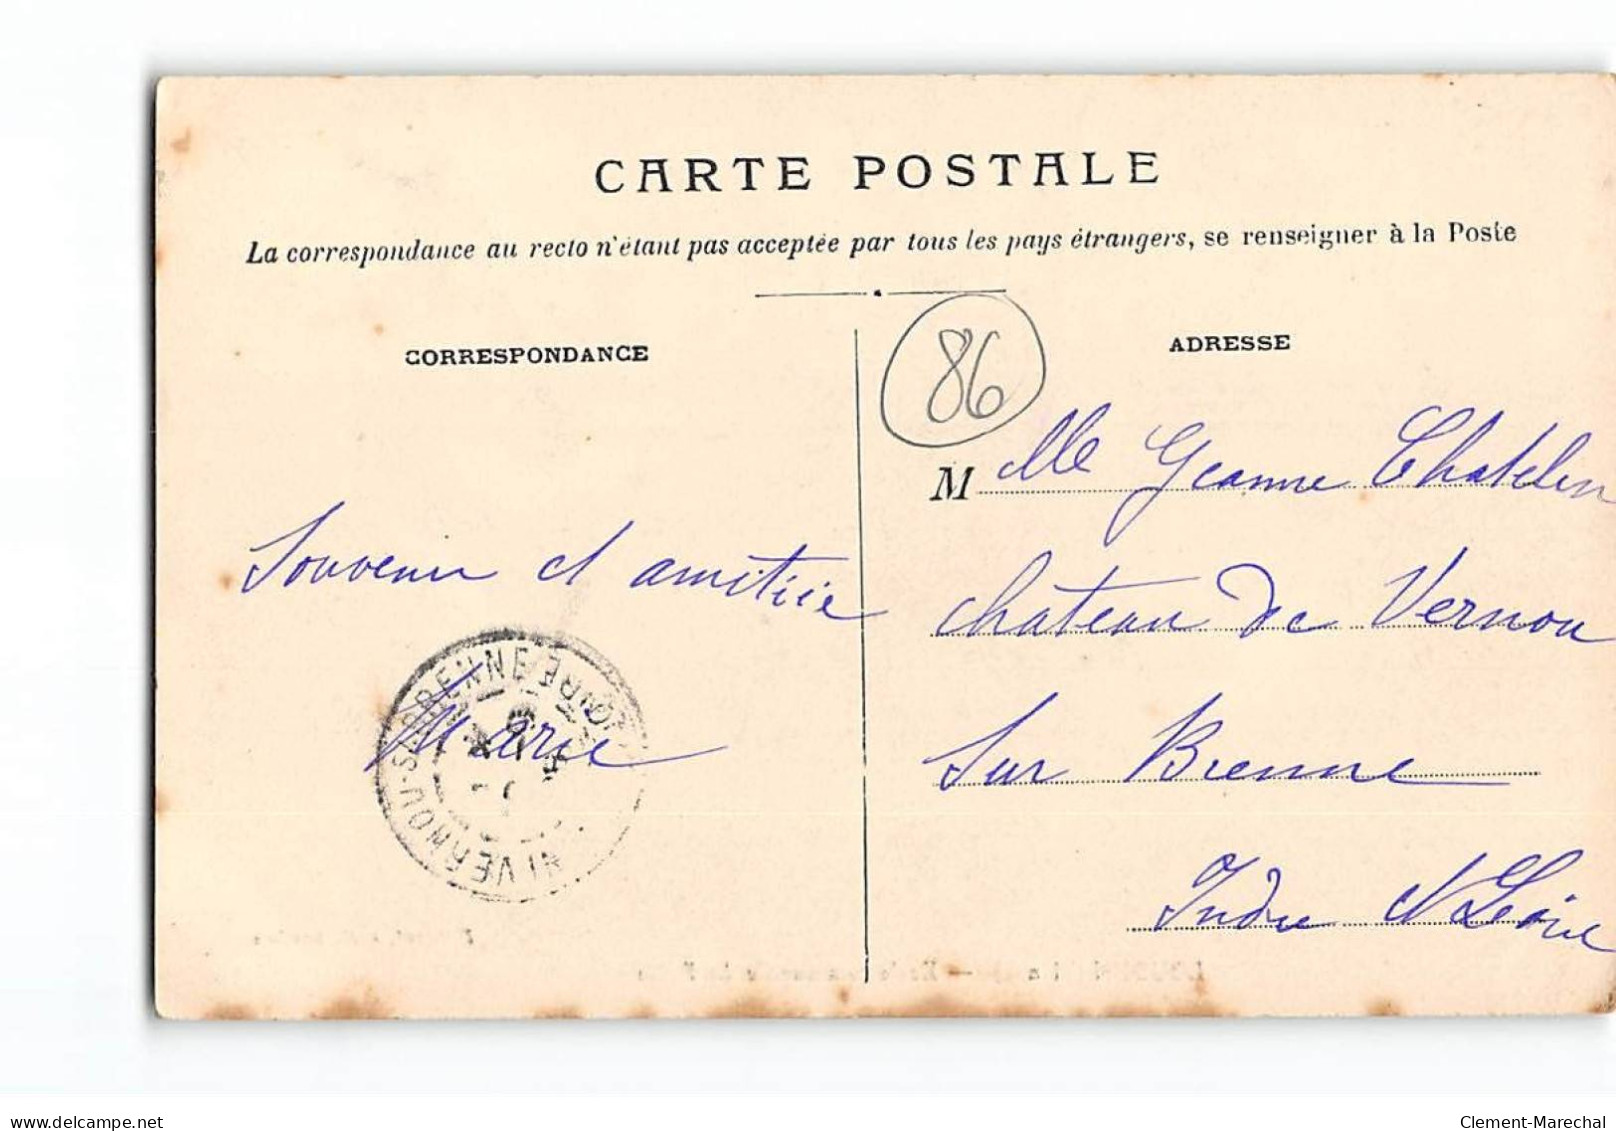 CARTE POSTALE
La correspondance au recto n'étant pas acceptée par tous les pays étrangers, se renseigner à la Poste
CORRESPONDANCE
ADRESSE
86
M lle Jeanne Chatelin
Souvenir et amitiée
chateau de Vernou
Marie
Sur Brenne
Indre et Loire
VERNOU-S-BRENNE
INDRE
www.delcampe.net
Clement-Marechal